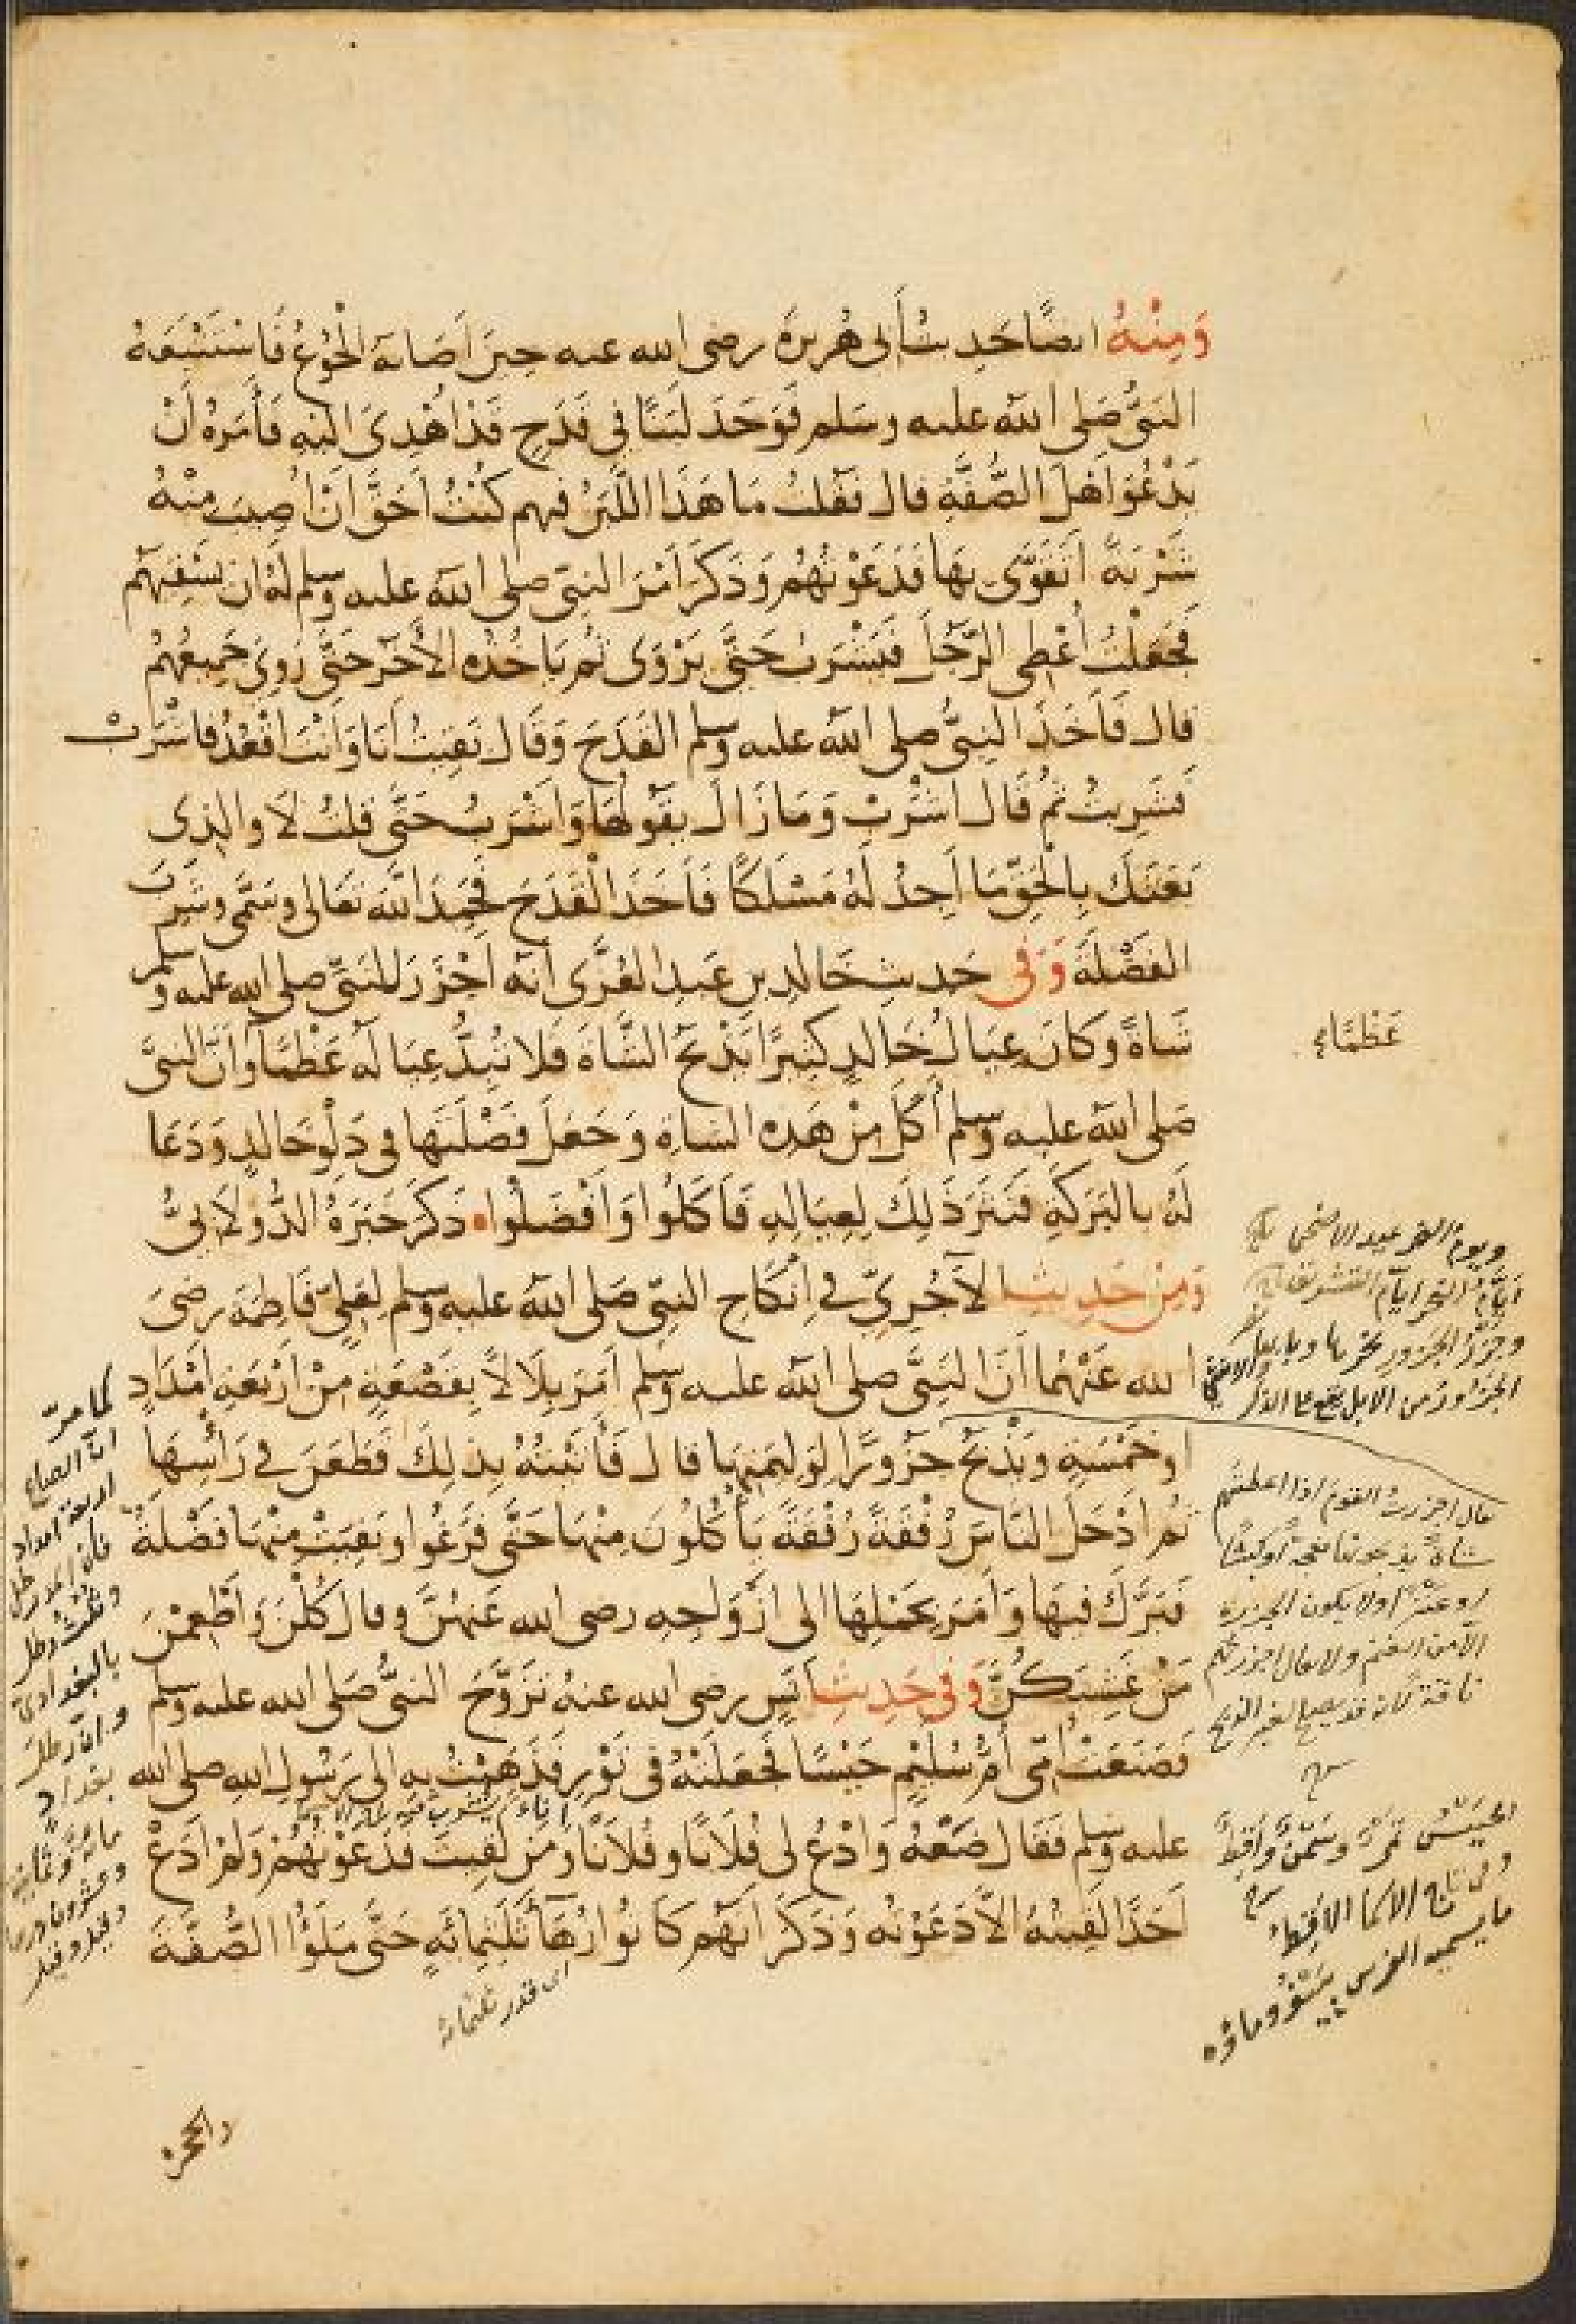 وَمِنْهُ ايضًا حَدِيثُ أَبِي هُرَيْرَةَ رضى الله عنه حِينَ أَصَابَهُ الْجُوْعُ فَاسْتَتْبَعَهُ
النَبىُّ صَلى الله عليه وسَلم فَوَجَدَ لَبَنًا فِي قَدَحٍ قَدْ اُهْدِىَ اليْهِ فَأَمَرَهُ أَنْ
يَدْعُوَ اَهْلَ الصُّفَّةِ قال فَقلتُ مَا هَذَا اللَّبَنُ فيهم كُنْتُ اَحَقَّ اَنْ اُصِيبَ مِنْهُ
شَرْبَةً اَتَقَوَّى بِهَا فَدَعَوْتُهُمْ وَذَكَرَ اَمْرَ النبىّ صلى الله عليه وسلم لهُ ان يَسْقِيَهُمْ
فَجَعَلْتُ اُعْطِى الرَّجُلَ فَيَشْرَبُ حَتَّى يَرْوَى ثم يَاخُذُه الآخَرُ حَتَّى رَوِىَ جَمِيعُهُمْ
قال فَاَخَذَ النبىُّ صلى الله عليه وسلم القَدَحَ وَقَالَ بَقِيتُ اَنَا وَاَنْتَ اقْعُدْ فاشْرَبْ
فَشَرِبتُ ثمُ قَال اشْرَبْ وَمَا زَالَ يَقَوُلُهَا وَاَشْرَبُ حَتَّى قلتُ لاَ والذِى
بَعَثَكَ بِالْحَقّ مَا اَجِدُ لَهُ مَسْلَكًا فَاَخَذَ الْقَدَحَ فَحَمِدَ اللهَ تَعَالى وسَمَّى وشَرِبَ
الفَضْلَةَ وَفى حَديثِ خَالدِ بنِ عَبدِ العُزَّى انه اَجْزَرَ للنبَىِّ صلى الله عليه وسلم
شَاةً وكانَ عِيَالُ خَالدٍ كثِيرًا يَذْبَحُ الشَّاةَ فَلا تُبِدُّ عِيَالَهُ عَظْمًا وَاَنَّ النبىَّ
عَظْمًا
صَلى الله عليه وسلم أَكَلَ مِنْ هَذِه الشاةِ وَجَعَلَ فَضْلَتَها فى دَلْوِ خالدٍ وَدَعَا
لَهُ بالبَرَكَةِ فَنَثَرَ ذَلِكَ لِعِيَالِهِ فَاَكَلُوا وَاَفْضَلُوا ذَكَرَ خَبَرَهُ الدُّولاَبىُّ
وَمِنْ حَدِيثِ الآجُرِيِّ فى اِنْكَاحِ النبِىّ صَلى الله عليه وسلم لِعَلِيٍّ فَاطِمَةَ رضىَ
الله عَنْهُما اَنَّ النبَىَّ صلى الله عليه وسلم اَمَرَ بِلاَلاً بِقَصْعَةٍ مِنْ اَرْبَعَةِ اَمْدَادٍ
او خَمْسَةٍ وَيَذْبَحُ جَزُورًا لِوَلِيمَتِهَا قال فَأَتَيْتُهُ بِذلِكَ فَطَعَنَ فى رَأْسِهَا
ثُمَّ اَدْخَلَ النَّاسَ رُفْقَةً رُفْقَةً يَأْكُلُونَ مِنْهَا حَتَّى فَرَغُوا وبَقِيَتْ مِنْهَا فَضْلَةٌ
فَبَرَّكَ فيهَا وَاَمَرَ بِحَمْلِهَا الى اَزْوَاجِه رضى الله عَنهُنَّ وقال كُلْنَ وَاَطْعِمْنَ
مَنْ غَشِيَكُنَّ وَفى حَدِيثِ اَنَسٍ رضى الله عنهُ تَزَوَّجَ النبىُّ صَلى الله عليه وسلم
فَصَنَعَتْ اُمّى اُمُّ سُلَيْمٍ حَيْسًا فَجَعَلَتْهُ فى تَوْرٍ فَذَهَبْتُ بِهِ الى رَسُولِ اللهِ صلى الله
عليه وسلم فَقَال ضَعْهُ وَادْعُ لى فُلاَنًا وفُلاَنًا وَمَنْ لَقِيتَ فَدَعَوْتُهُمْ وَلمْ اَدَعْ
اَحَدًا لَقِيتُهُ الاَّ دَعَوْتُه وَذَكَرَ اَنَهُم كَانُوا زُهَآءَ ثَلَثِمِائَةٍ حَتَّى مَلَؤُا الصُّفَّةَ
اى قدر ثلثمائه
ويوم النحر عيد الاضحى
قال اجزرت القوم اذا اعطيتهم
شاةً يذبحونها نعجة او كبشًا
او عنزًا ولا يكون الجزرة
الا من الغنم ولا يقال اجزرتهم
ناقة لانه قد يصلح لغير الذبح
الحَيسُ تَمرٌ وسَمْنٌ واَقِطٌ
كما مرّ
انّ الصاع
اربعة امداد
والحجرة